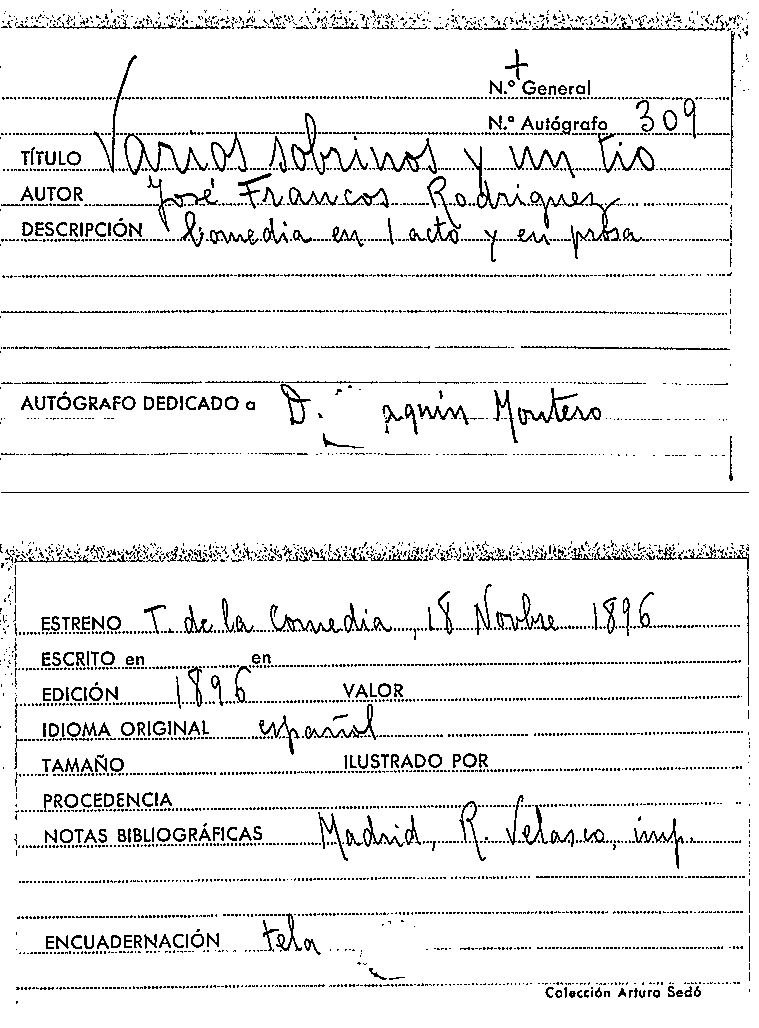 +
N.º General
N.º Autógrafo 309
TÍTULO Varios sobrinos y un tio
AUTOR José Francos Rodriguez
DESCRIPCIÓN Comedia en 1 acto y en prosa
AUTÓGRAFO DEDICADO a D. aquín Montero
ESTRENO T. de la Comedia, 18 Novbre 1896
ESCRITO en en
EDICIÓN 1896 VALOR
IDIOMA ORIGINAL español
TAMAÑO ILUSTRADO POR
PROCEDENCIA
NOTAS BIBLIOGRÁFICAS Madrid, R. Velasco, imp.
ENCUADERNACIÓN tela
Colección Arturo Sedó